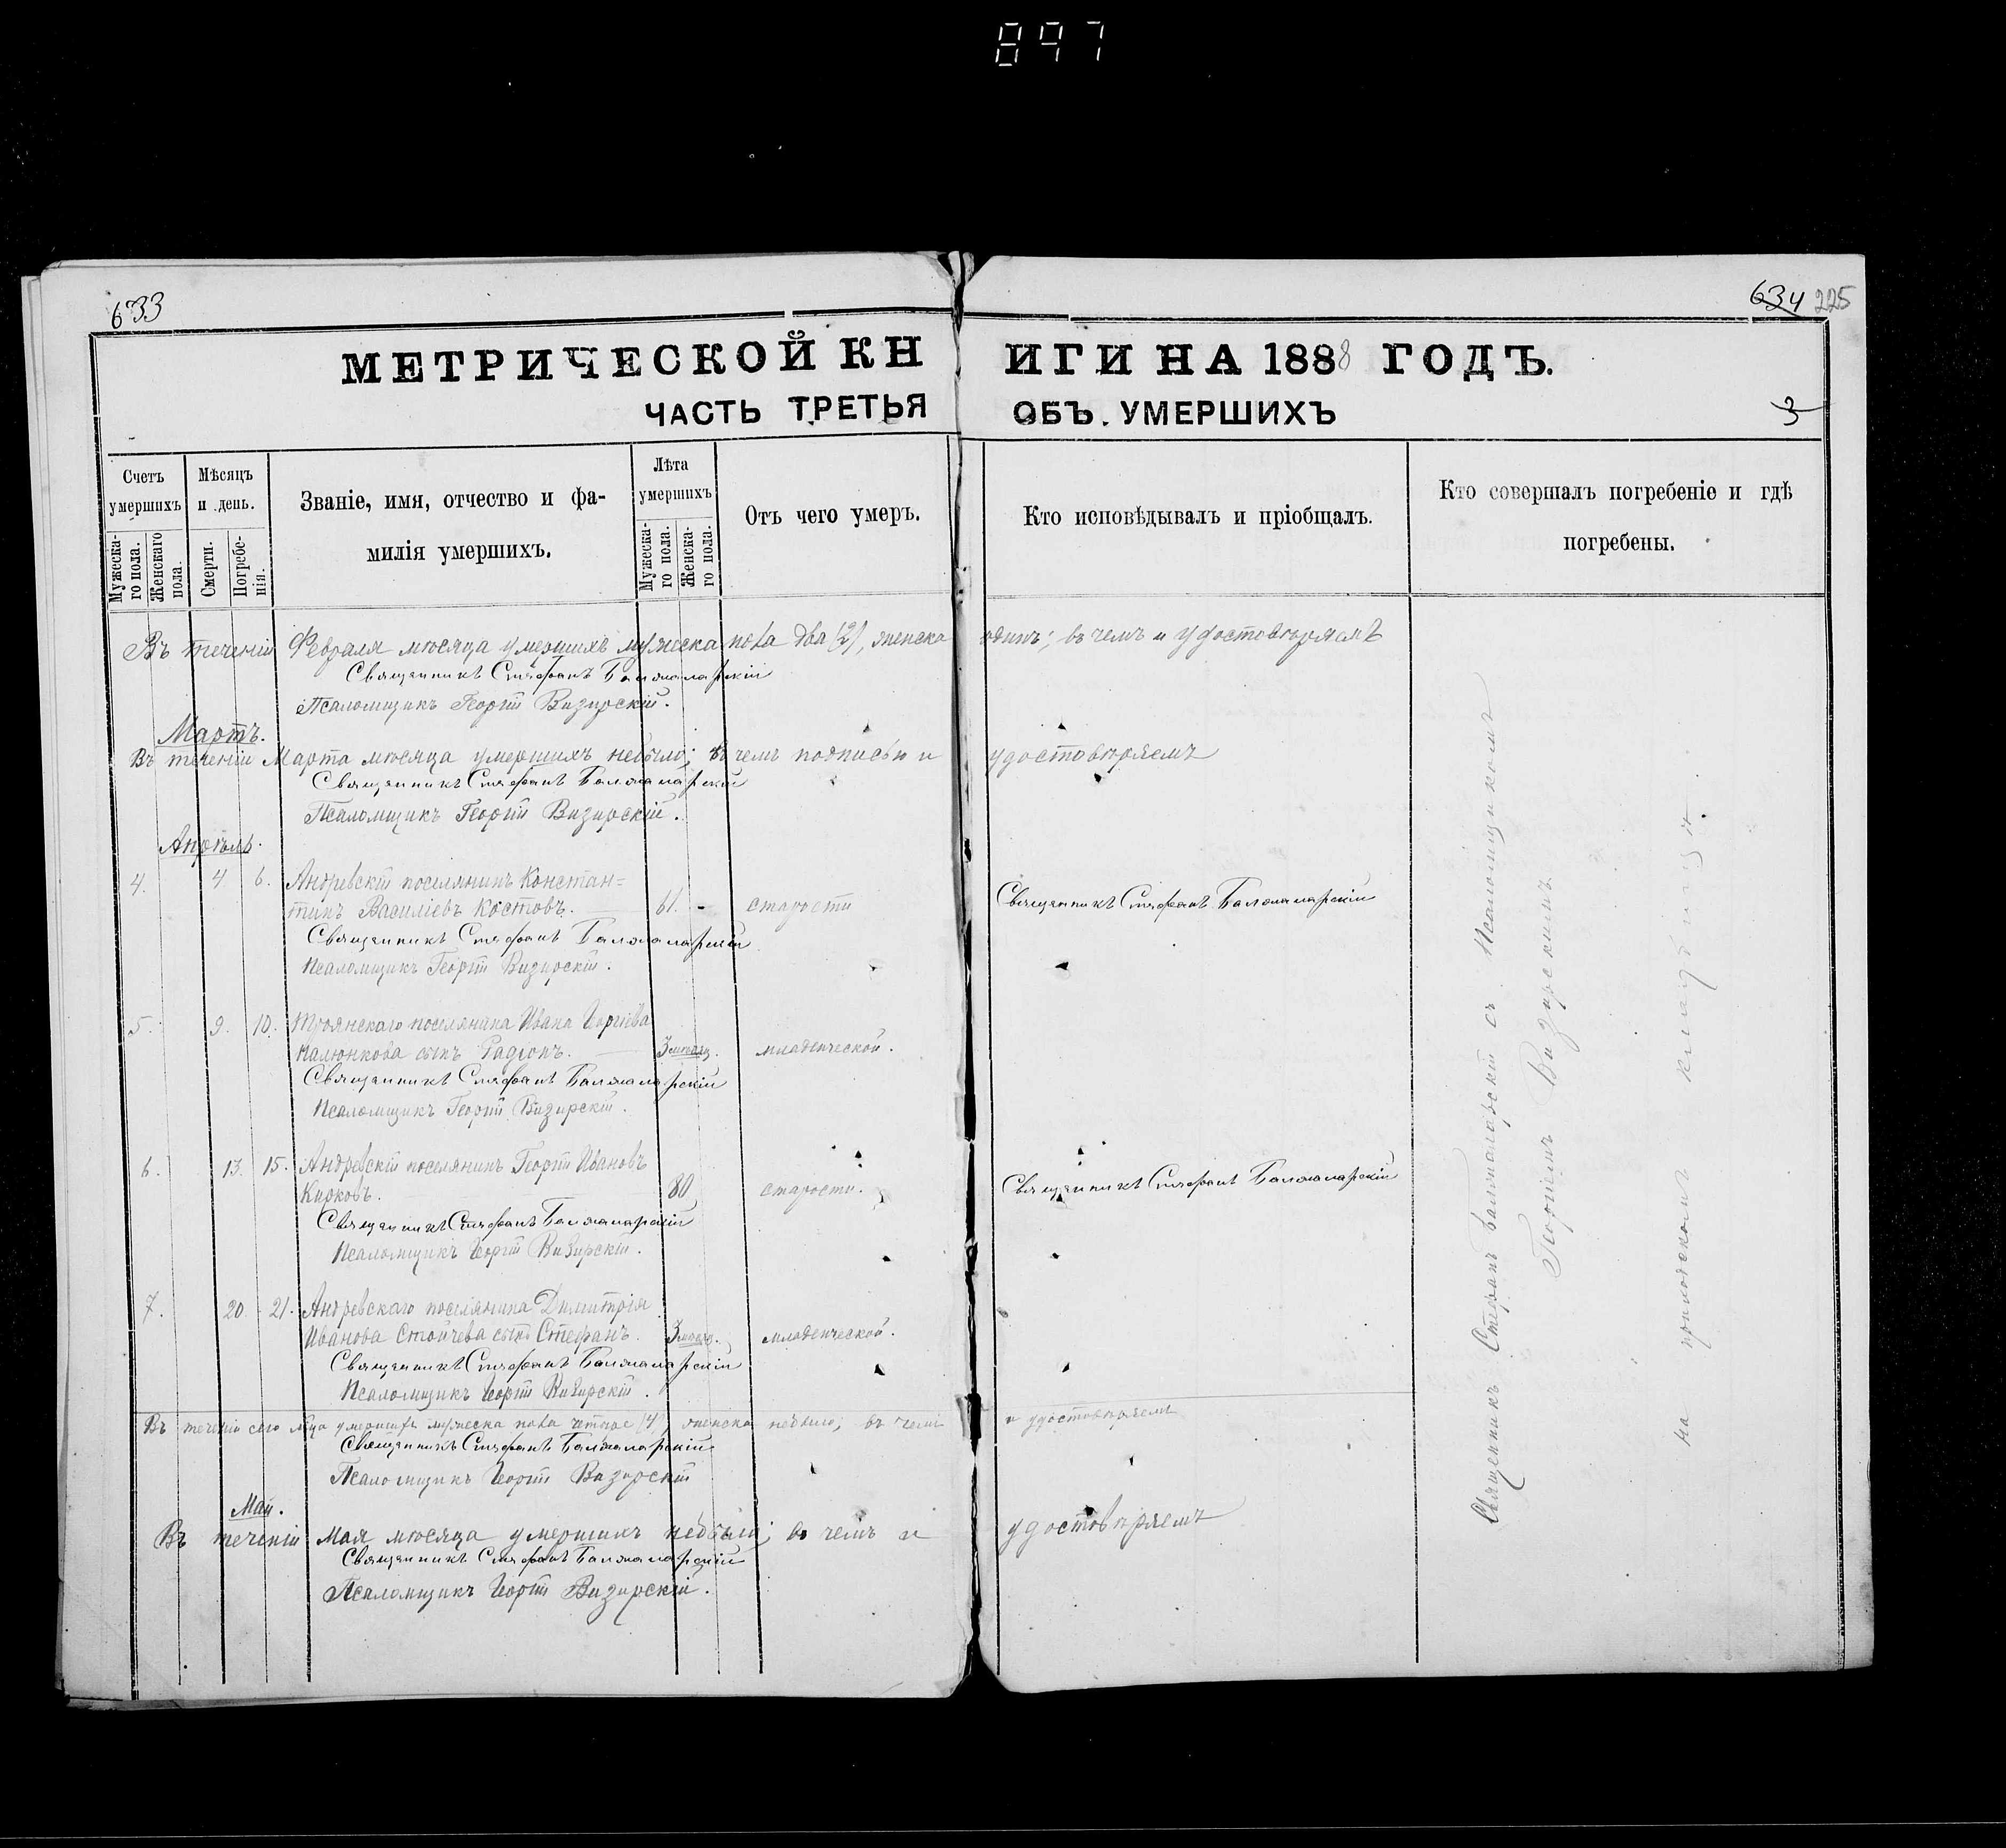 897
633
634 225
МЕТРИЧЕСКОЙ КНИГИ НА 1888 ГОДЪ.
ЧАСТЬ ТРЕТЬЯ ОБЪ УМЕРШИХЪ
3
Счетъ умершихъ
Мужескаго пола.
Женскаго пола.
Мѣсяцъ и день.
Смерти.
Погребенія.
Званіе, имя, отчество и фамилія умершихъ.
Лѣта умершихъ
Мужескаго пола.
Женскаго пола.
Отъ чего умеръ.
Кто исповѣдывалъ и пріобщалъ.
Кто совершалъ погребеніе и гдѣ погребены.
Въ теченіи Февраля мѣсяца умершихъ мужеска пола два (2), женска одинъ; въ чемъ и удостовѣряемъ
Священникъ Стефанъ Балжаларскій
Псаломщикъ Георгій Визирскій.
Мартъ.
Въ теченіи Марта мѣсяца умершихъ небыло; въ чемъ подписью и удостовѣряемъ
Священникъ Стефанъ Балжаларскій
Псаломщикъ Георгій Визирскій.
Апрѣль.
4. 4. 6. Андревскій поселянинъ Констан=
тинъ Василіевъ Костовъ. 61. - старости Священникъ Стефанъ Балжаларскій
Священникъ Стефанъ Балжаларскій
Псаломщикъ Георгій Визирскій.
5. 9. 10. Троянскаго поселянина Ивана Георгіева
сынъ Радіонъ. 3 младенческой.
Священникъ Стефанъ Балжаларскій
Псаломщикъ Георгій Визирскій.
6. 13. 15. Андревскій поселянинъ Георгій Ивановъ
Кирковъ. 80 старости. Священникъ Стефанъ Балжаларскій
Священникъ Стефанъ Балжаларскій
Псаломщикъ Георгій Визирскій.
7. 20 - 21. Андревскаго поселянина Димитрія
Иванова Стойчева сынъ Стефанъ. 3 младенческой.
Священникъ Стефанъ Балжаларскій
Псаломщикъ Георгій Визирскій.
Въ теченіи сего м̃ца умершихъ мужеска пола четыре (4), женска небыло; въ чемъ и удостовѣряемъ
Священникъ Стефанъ Балжаларскій
Псаломщикъ Георгій Визирскій
Май.
Въ теченіи Мая мѣсяца умершихъ небыло; въ чемъ и удостовѣряемъ
Священникъ Стефанъ Балжаларскій
Псаломщикъ Георгій Визирскій.
Священникъ Стефанъ Балжаларскій съ Псаломщикомъ
Георгіемъ Визирскимъ
на приходскомъ кладбищѣ.